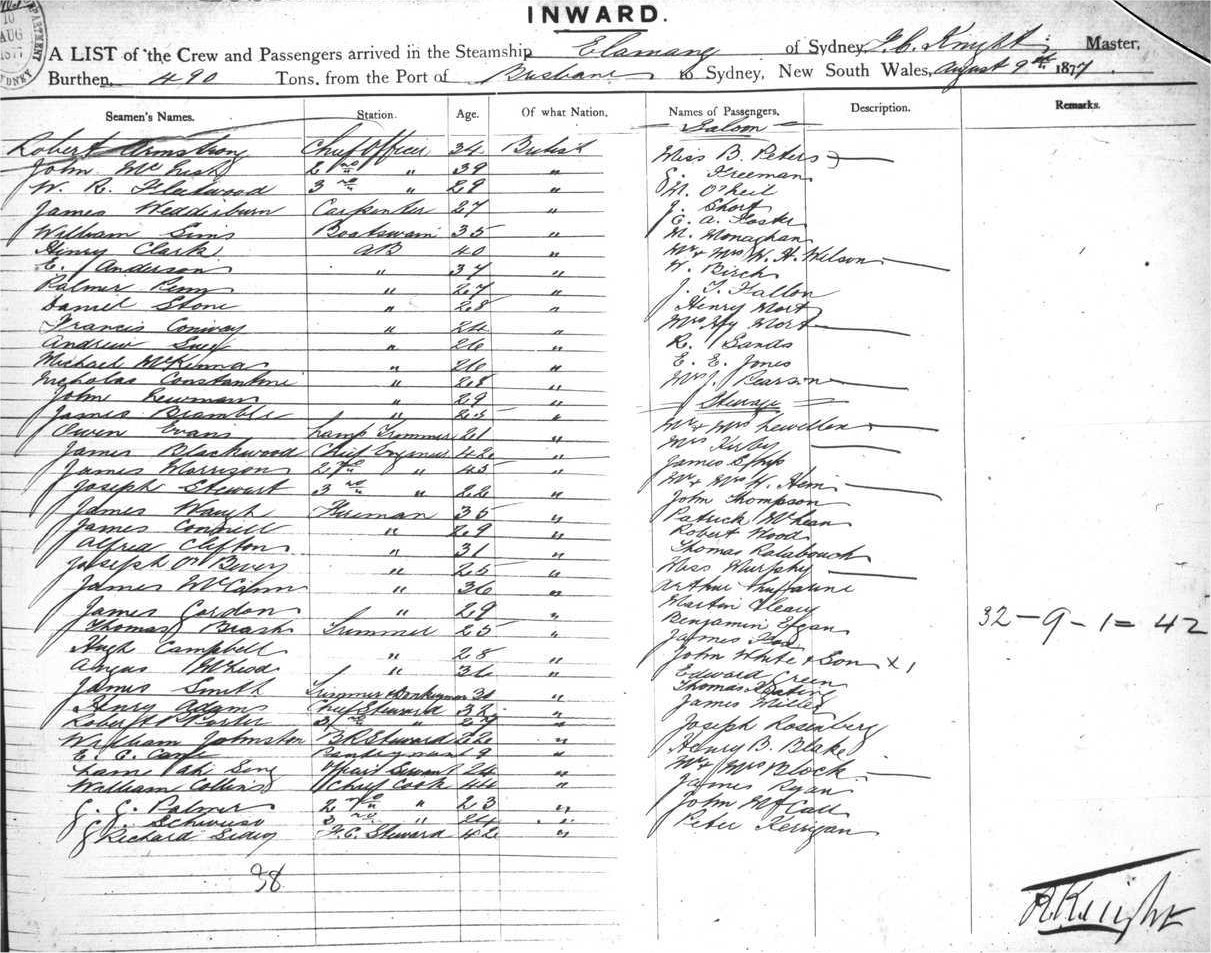 10
AUG
1877
INWARD.
A LIST of the Crew and Passengers arrived in the Steamship Elamang of Sydney, Knight Master,
Burthen, 490 Tons, from the Port of Brisbane to Sydney, New South Wales, August 9th 1877.
Seamen's Names. Station. Age. Of what Nation. Names of Passengers. Description. Remarks.
Saloon
Robert Armstrong Chief Officer 34 British Miss B. Peters
John 2nd " 39 " Freeman
W. R. Fleetwood 3rd " 29 " M. O'Neil
James Wedderburn Carpenter 27 " J. Short
William Sims Boatswain 35 " E. A. Foster
Henry Clark AB 40 " M. Monaghan
E. Anderson " 37 " Mr & Mrs W. H. Wilson
Palmer " 27 " W. Birch
Daniel Stone " 28 " J. T. Fallon
Francis Conway " 24 " Henry Mort
Andrew " 26 " Mrs Hy Mort
Michael McKenna " 26 " R. Sands
Nicholas Constantine " 28 " E. E. Jones
John Newman " 29 " Mrs J. Pearson
James Bramble " 25 " Steerage
Owen Evans Lamp Trimmer 21 " Mr & Mrs Lewellen
James Blackwood Chief Engineer 42 " Mrs Kirby
James Morrison 2nd " 45 " James
Joseph Stewart 3rd " 22 " Mr & Mrs H.
James Waugh Fireman 35 " John Thompson
James " 29 " Patrick McKean
Alfred Clifton " 31 " Robert Wood
Joseph " 25 " Thomas
James McCann " 36 " Miss Murphy
James Gordon " 29 " Arthur
Thomas Brash Trimmer 25 " Martin Cleary
Hugh Campbell " 28 " Benjamin Egan
Angus McLeod " 36 " James
James Smith Trimmer & Donkeyman 30 " John White & Son x 1
Henry Adams Chief Steward 32 " Edward Green
Robert Porter " 27 " Thomas Keating
William Johnston Steward 22 " James Miller
E. C. Cane Pantryman " Joseph Rosenberg
Ah Sing Servant 24 " Henry B. Blake
William Collins Chief Cook 44 " Mr & Mrs Block
Palmer 2nd " 23 " James Ryan
3rd " 24 " John McCall
Richard F. C. Steward 42 " Peter Kerrigan
32 - 9 - 1 = 42
38
Knight